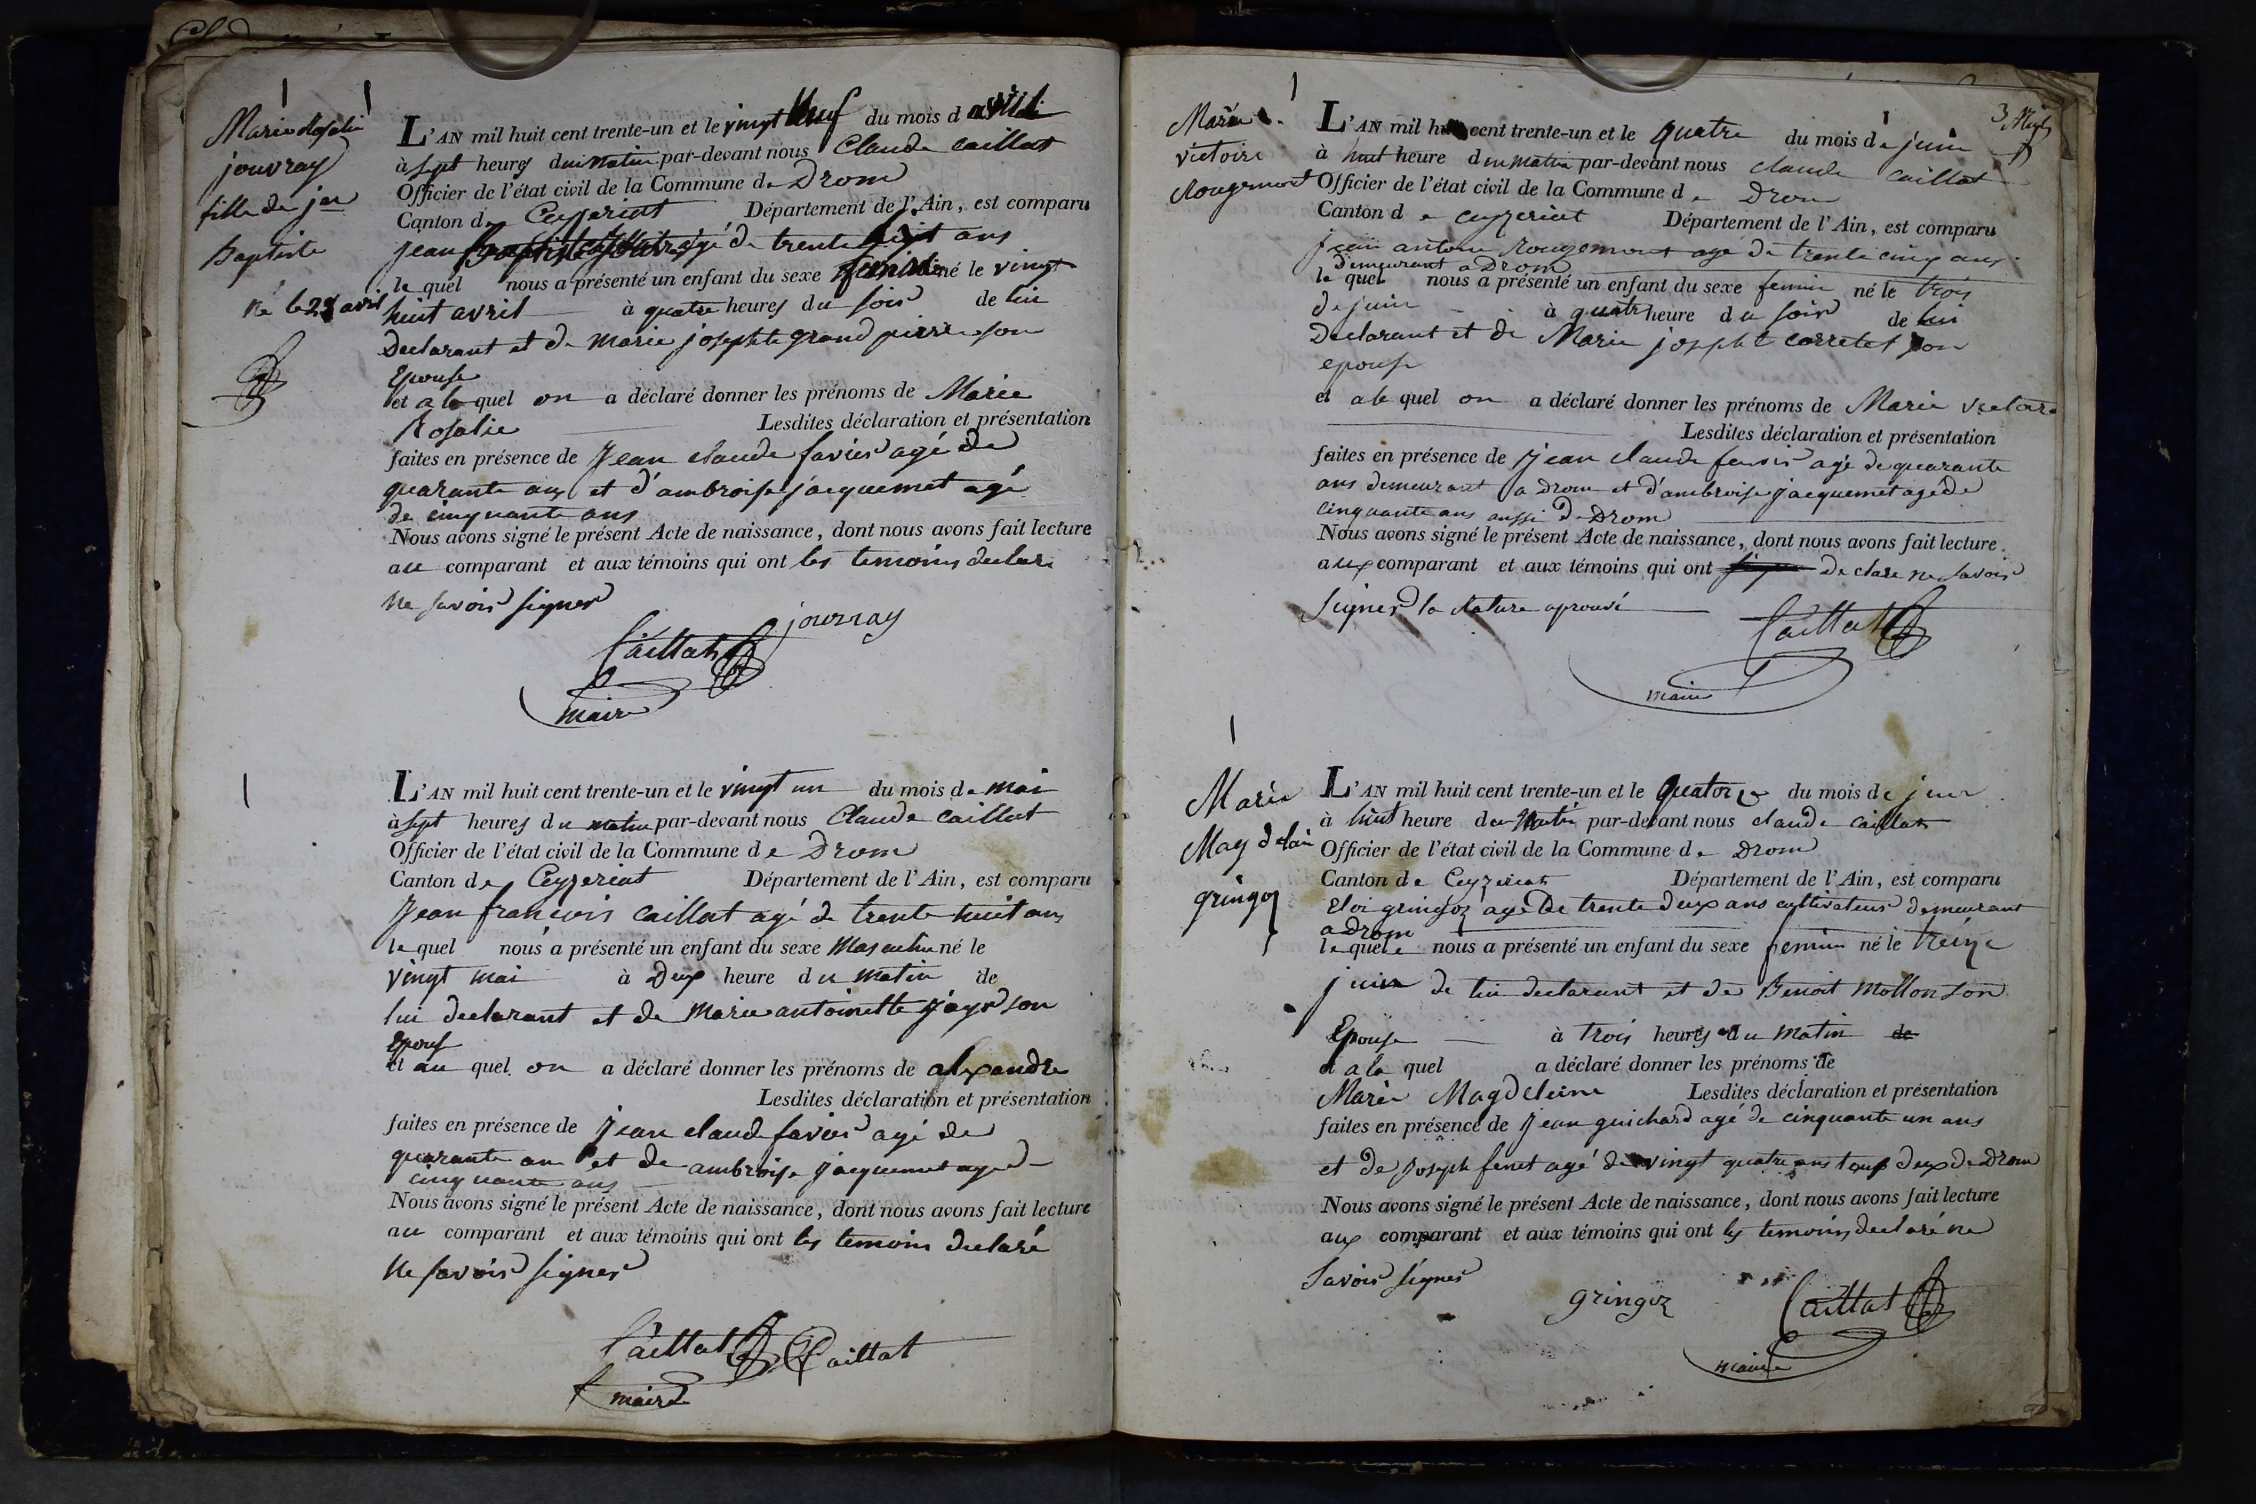 Marie Rosalie
jouvray
fille de jean
Baptiste
né le 28 avril
L'AN mil huit cent trente-un et le vingt neuf du mois d avril
à sept heures du matin par-devant nous Claude Caillat
Officier de l'état civil de la Commune de Drom
Canton de Ceyzeriat Département de l'Ain, est comparu
jean Baptiste jouvray agé de trente ans
le quel nous a présenté un enfant du sexe feminin né le vingt
huit avril à quatre heures du soir de lui
Declarant et de Marie josephte grand pierre son
Epouse
et a le quel on a déclaré donner les prénoms de Marie
Rosalie Lesdites déclaration et présentation
faites en présence de Jean claude favier agé de
quarante ans et d'ambroise jacquemet agé
de cinquante ans
Nous avons signé le présent Acte de naissance, dont nous avons fait lecture
au comparant et aux témoins qui ont les temoins declare
ne savoir signer
jouvray
Caillat
maire
L'AN mil huit cent trente-un et le vingt un du mois de mai
à sept heures du matin par-devant nous Claude Caillat
Officier de l'état civil de la Commune de Drom
Canton de Ceyzeriat Département de l'Ain, est comparu
Jean françois Caillat agé de trente huit ans
le quel nous a présenté un enfant du sexe Masculin né le
vingt mai à Deux heure du matin de
lui declarant et de Marie antoinette son
Epouse
et au quel on a déclaré donner les prénoms de alexandre
Lesdites déclaration et présentation
faites en présence de Jean claude favier agé de
quarante ans et de ambroise jacquemet agé de
cinquante ans
Nous avons signé le présent Acte de naissance, dont nous avons fait lecture
au comparant et aux témoins qui ont les temoins declaré
ne savoir signer
Caillat Caillat
maire
3
Marie
victoire
Rougemont
L'AN mil huit cent trente-un et le quatre du mois de juin
à huit heure du matin par-devant nous claude caillat
Officier de l'état civil de la Commune de Drom
Canton de ceyzeriat Département de l'Ain, est comparu
jean antoine Rougemont agé de trente cinq ans
demeurant a Drom
le quel nous a présenté un enfant du sexe feminin né le trois
de juin à quatre heure du soir de lui
Declarant et de Marie josephte corretet son
epouse
et a le quel on a déclaré donner les prénoms de Marie victoire
Lesdites déclaration et présentation
faites en présence de Jean claude agé de quarante
ans demeurant a Drom et d'ambroise jacquemet agé de
cinquante ans aussi de Drom
Nous avons signé le présent Acte de naissance, dont nous avons fait lecture
aux comparant et aux témoins qui ont declare ne savoir
signer la rature aprouvé
Caillat
maire
Marie
Magdelaine
gringoz
L'AN mil huit cent trente-un et le Quatorze du mois de juin
à huit heure du Matin par-devant nous claude caillat
Officier de l'état civil de la Commune de Drom
Canton de Ceyzeriat Département de l'Ain, est comparu
Eloi gringoz agé De trente deux ans cultivateur demeurant
a Drom
le quel nous a présenté un enfant du sexe feminin né le treize
juin de lui declarant et de Benoit Mollon son
Epouse à trois heures du Matin de
et a la quel a déclaré donner les prénoms de
Marie Magdeleine Lesdites déclaration et présentation
faites en présence de Jean guichard agé de cinquante un ans
et de Joseph fenet agé de vingt quatre ans tous deux de Drom
Nous avons signé le présent Acte de naissance, dont nous avons fait lecture
aux comparant et aux témoins qui ont les temoins declaré ne
Savoir signer
gringoz Caillat
maire